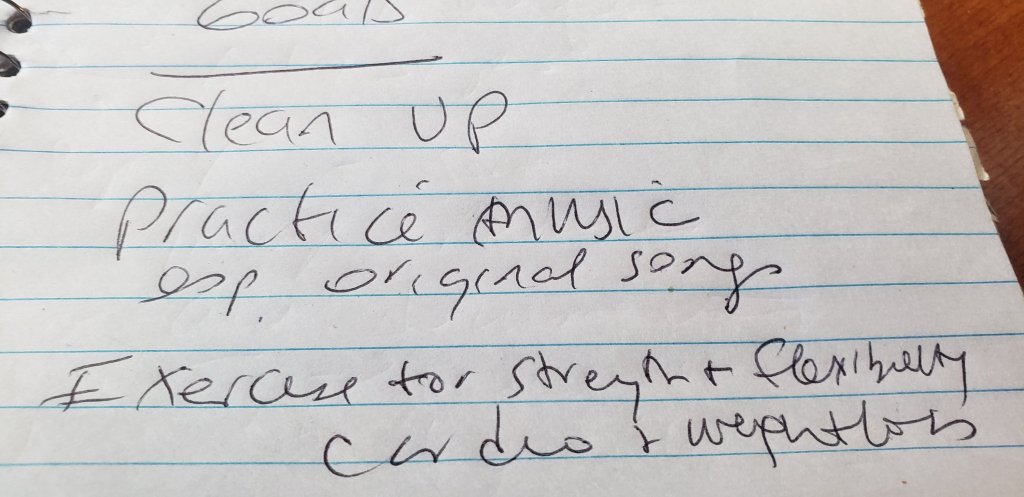 Goals
Clean UP
Practice music
esp. original songs
Exercise for strength + flexibility
cardio + weightloss